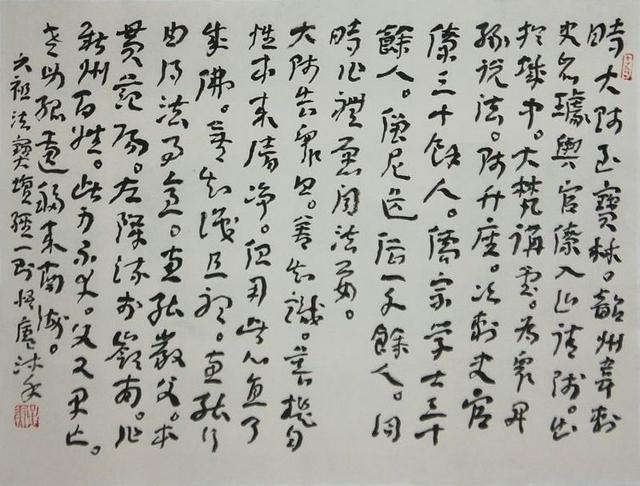 時大師至寶林。韶州韋刺
史名璩與官僚入山請師。出
於城中。大梵講堂。為眾開
緣說法。師升座。次刺史官
僚三十餘人。儒宗学士三十
餘人。僧尼道俗一千餘人。同
時作禮愿聞法要。
大師告眾曰。善知識。菩提自
性本來清净。但用此心直了
成佛。善知識且聽。惠能行
由得法事意。惠能嚴父。本
貫范陽。左降流於嶺南。作
新州百姓。此身不幸。父又早亡。
老母孤遺移來南海。
六祖法寶壇經一則 悟廬沐手